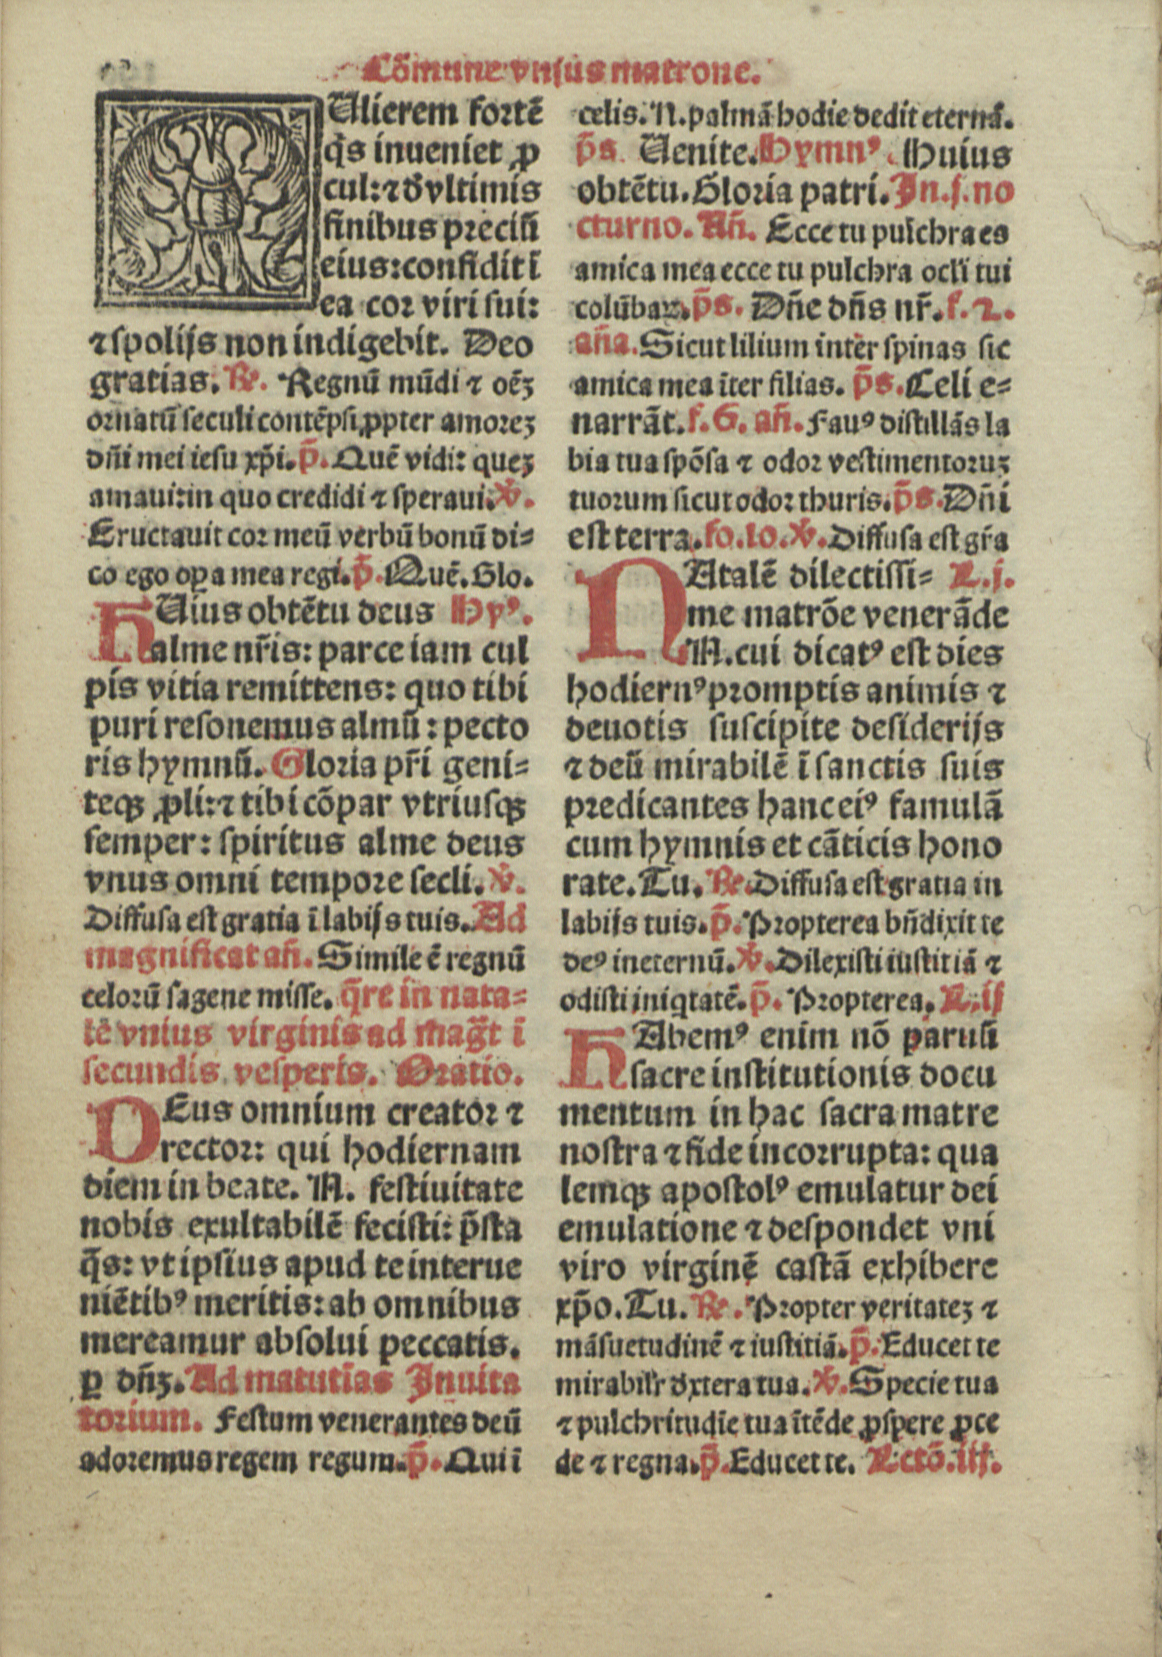 Cõmune vnius matrone.
MUlierem fortẽ
q̃s inueniet ꝓ
cul: ⁊ d̾ vltimis
finibus preciũ
eius: confidit ĩ
ea cor viri sui:
⁊ spolijs non indigebit. Deo
gratias. ℟. Regnũ mũdi ⁊ oẽꝫ
ornatũ seculi contẽpsi ꝓpter amoreꝫ
dñi mei iesu xp̃i. p̃. Quẽ vidi: queꝫ
amaui: in quo credidi ⁊ speraui. ℣.
Eructauit cor meũ verbũ bonũ di⸗
co ego oꝑa mea regi. p̃. Quẽ. Glo.
HUius obtẽtu deus Hyꝰ.
alme nr̃is: parce iam cul
pis vitia remittens: quo tibi
puri resonemus almũ: pecto
ris hymnũ. Gloria pr̃i geni⸗
teqꝫ ꝓli: ⁊ tibi cõpar vtriusqꝫ
semper: spiritus alme deus
vnus omni tempore secli. ℣.
Diffusa est gratia ĩ labijs tuis. Ad
magnificat añ. Simile ẽ regnũ
celorũ sagene misse. q̃re in nata⸗
lẽ vnius virginis ad mag̃t ĩ
secundis vesperis. Oratio.
DEus omnium creator ⁊
rector: qui hodiernam
diem in beate. N. festiuitate
nobis exultabilẽ fecisti: p̃sta
q̃s: vt ipsius apud te interue
niẽtibꝰ meritis: ab omnibus
mereamur absolui peccatis.
ꝑ dñꝫ. Ad matutĩas Inuita
torium. Festum venerantes deũ
adoremus regem regum. p̃. Qui ĩ
celis. N. palmã hodie dedit eternã.
p̃s. Uenite. Hymnꝰ. Huius
obtẽtu. Gloria patri. In .j. no
cturno. Añ. Ecce tu pulchra es
amica mea ecce tu pulchra ocl̃i tui
colũbaꝝ. p̃s. Dñe dñs nr̃. f. 2.
aña. Sicut lilium inter spinas sic
amica mea ĩter filias. p̃s. Celi e⸗
narrãt. f. 6. añ. Fauꝰ distillãs la
bia tua spõsa ⁊ odor vestimentoruꝫ
tuorum sicut odor thuris. p̃s. Dñi
est terra. fo. 10. ℣. Diffusa est gr̃a
NAtalẽ dilectissi⸗ L. j.
me matrõe venerãde
N. cui dicatꝰ est dies
hodiernꝰ promptis animis ⁊
deuotis suscipite desiderijs
⁊ deũ mirabilẽ ĩ sanctis suis
predicantes hanc eiꝰ famulã
cum hymnis et cãticis hono
rate. Tu. ℟. Diffusa est gratia in
labijs tuis. p̃. Propterea bñdixit te
deꝰ in eternũ. ℣. Dilexisti iustitiã ⁊
odisti iniq̃tatẽ. p̃. Propterea. L. ij
HAbemꝰ enim nõ paruũ
sacre institutionis docu
mentum in hac sacra matre
nostra ⁊ fide incorrupta: qua
lemqꝫ apostolꝰ emulatur dei
emulatione ⁊ despondet vni
viro virginẽ castã exhibere
xp̃o. Tu. ℟. Propter veritateꝫ ⁊
mãsuetudinẽ ⁊ iustitiã. p̃. Educet te
mirabilr̃ dxtera tua. ℣. Specie tua
⁊ pulchritudĩe tua ĩtẽde ꝓspere ꝓce
de ⁊ regna. p̃. Educet te. Lctõ. iij.